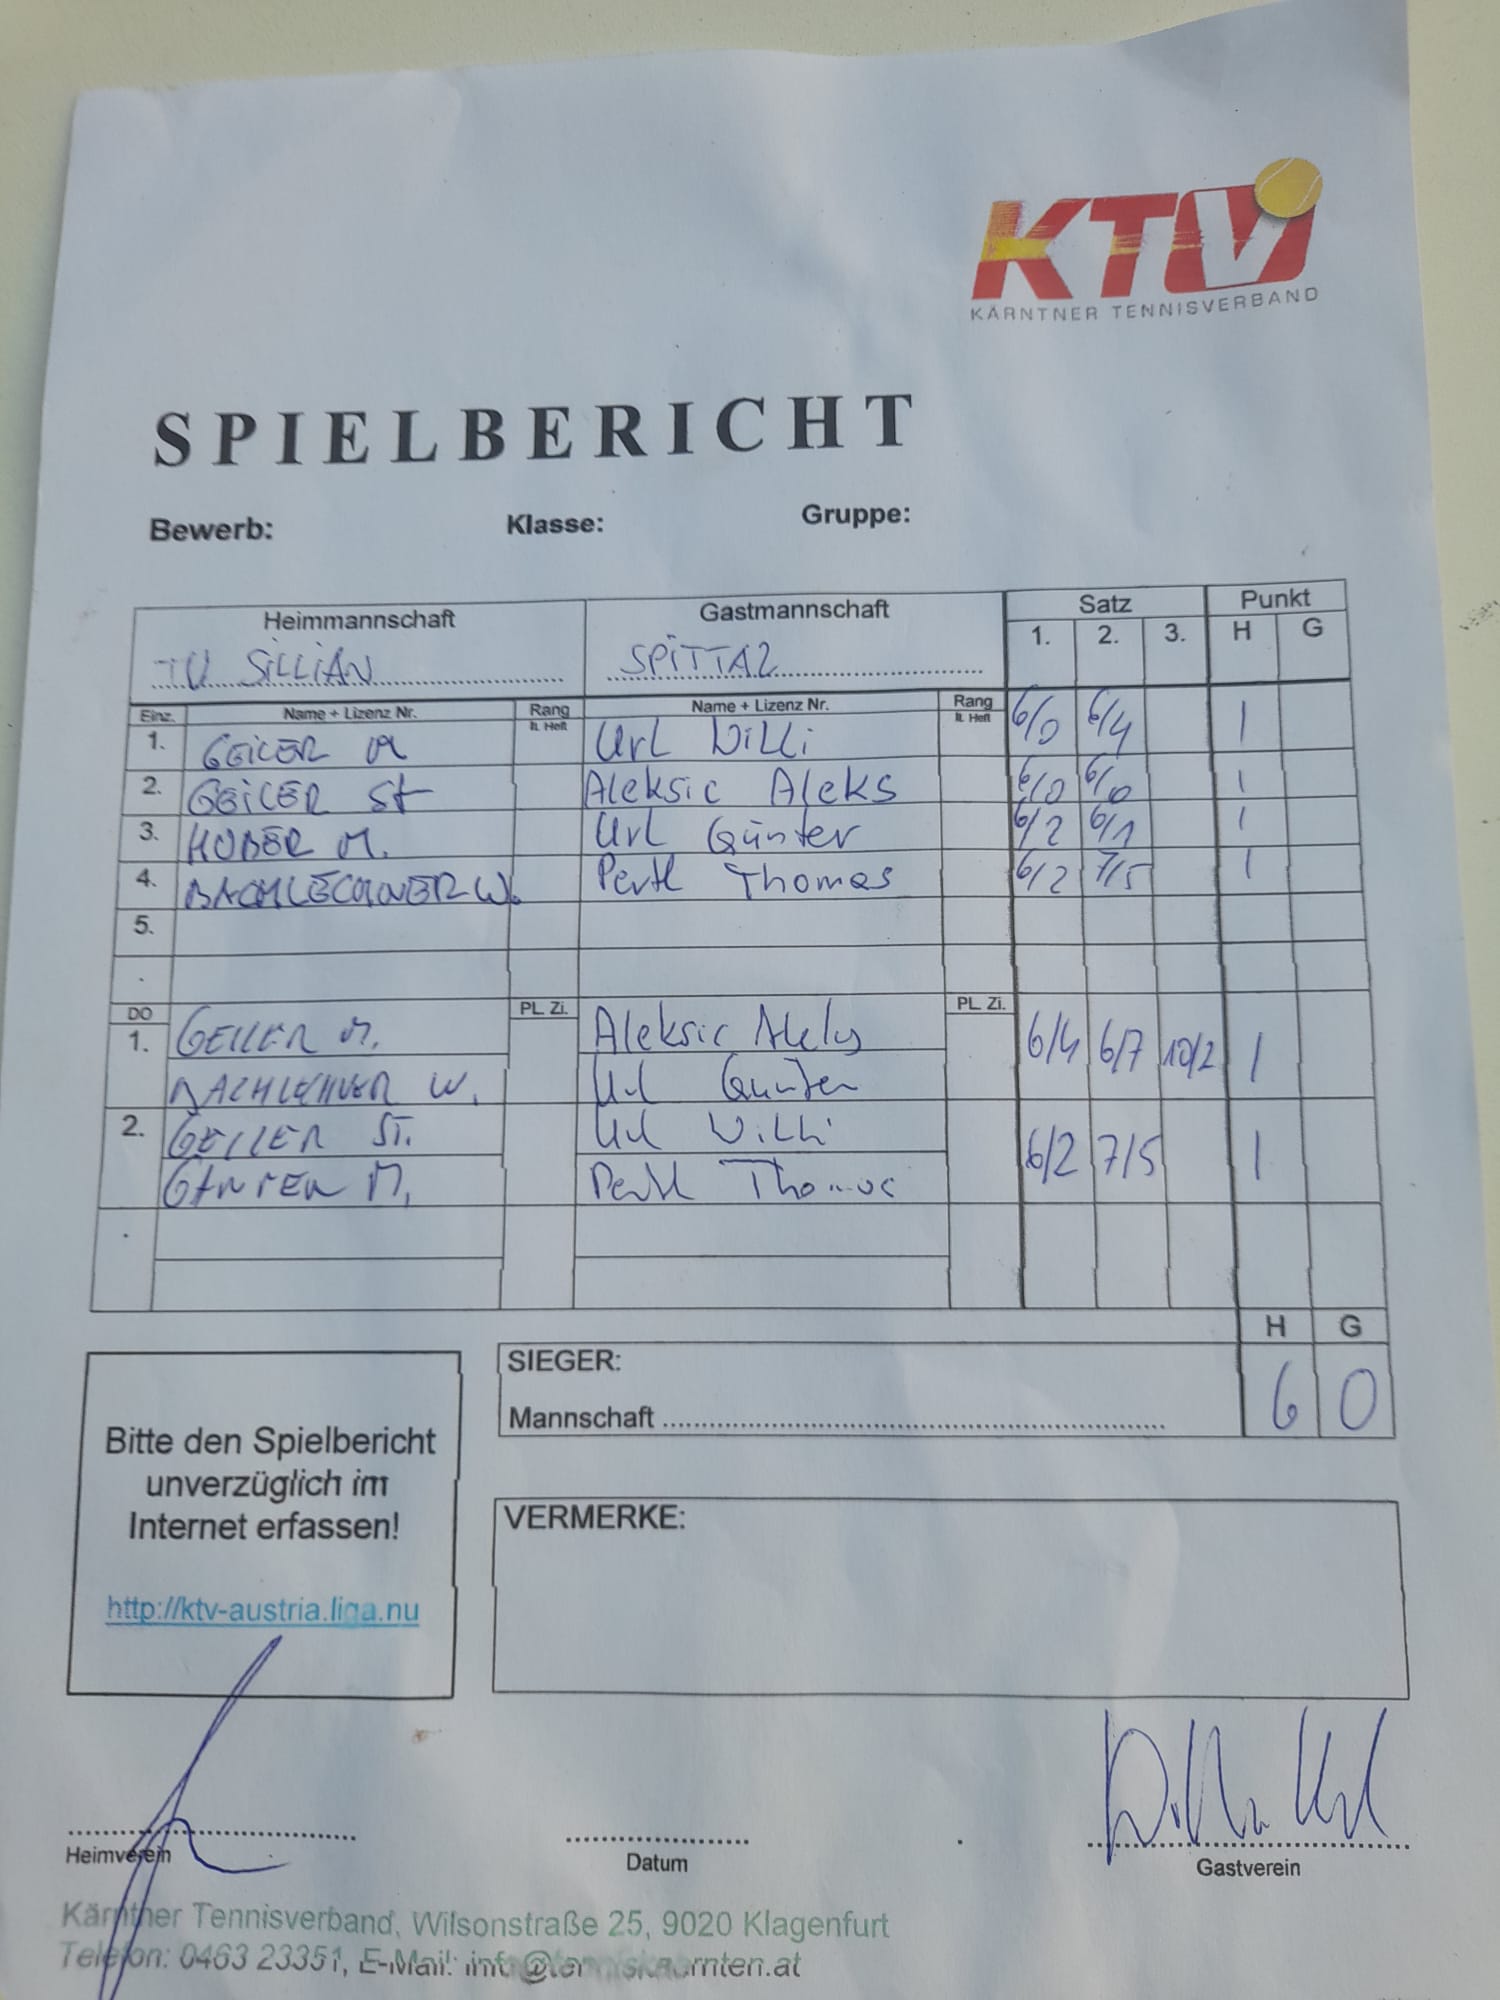 KTV
KÄRNTNER TENNISVERBAND
SPIELBERICHT
Bewerb: Klasse: Gruppe:
Heimmannschaft Gastmannschaft Satz Punkt
1. 2. 3. H G
TU SILLIAN SPITTAL
Einz. Name + Lizenz Nr. Rang lt. Heft Name + Lizenz Nr. Rang lt. Heft
1. GEILER M Url Willi 6/0 6/4 1
2. GEILER St Aleksic Aleks 6/0 6/0 1
3. HUBER M. Url Günter 6/2 6/1 1
4. BACHLECHNER W. Pertl Thomas 6/2 7/5 1
5.
DO PL. Zi. PL. Zi.
1. GEILER M. Aleksic 6/4 6/7 10/2 1
W. Url Günter
2. GEILER ST. Url Willi 6/2 7/5 1
M. Pertl Thomas
H G
SIEGER:
Mannschaft 6 0
Bitte den Spielbericht
unverzüglich im
Internet erfassen!
http://ktv-austria.liga.nu
VERMERKE:
Heimverein Datum Gastverein
Kärntner Tennisverband, Wilsonstraße 25, 9020 Klagenfurt
Telefon: 0463 23351, E-Mail: